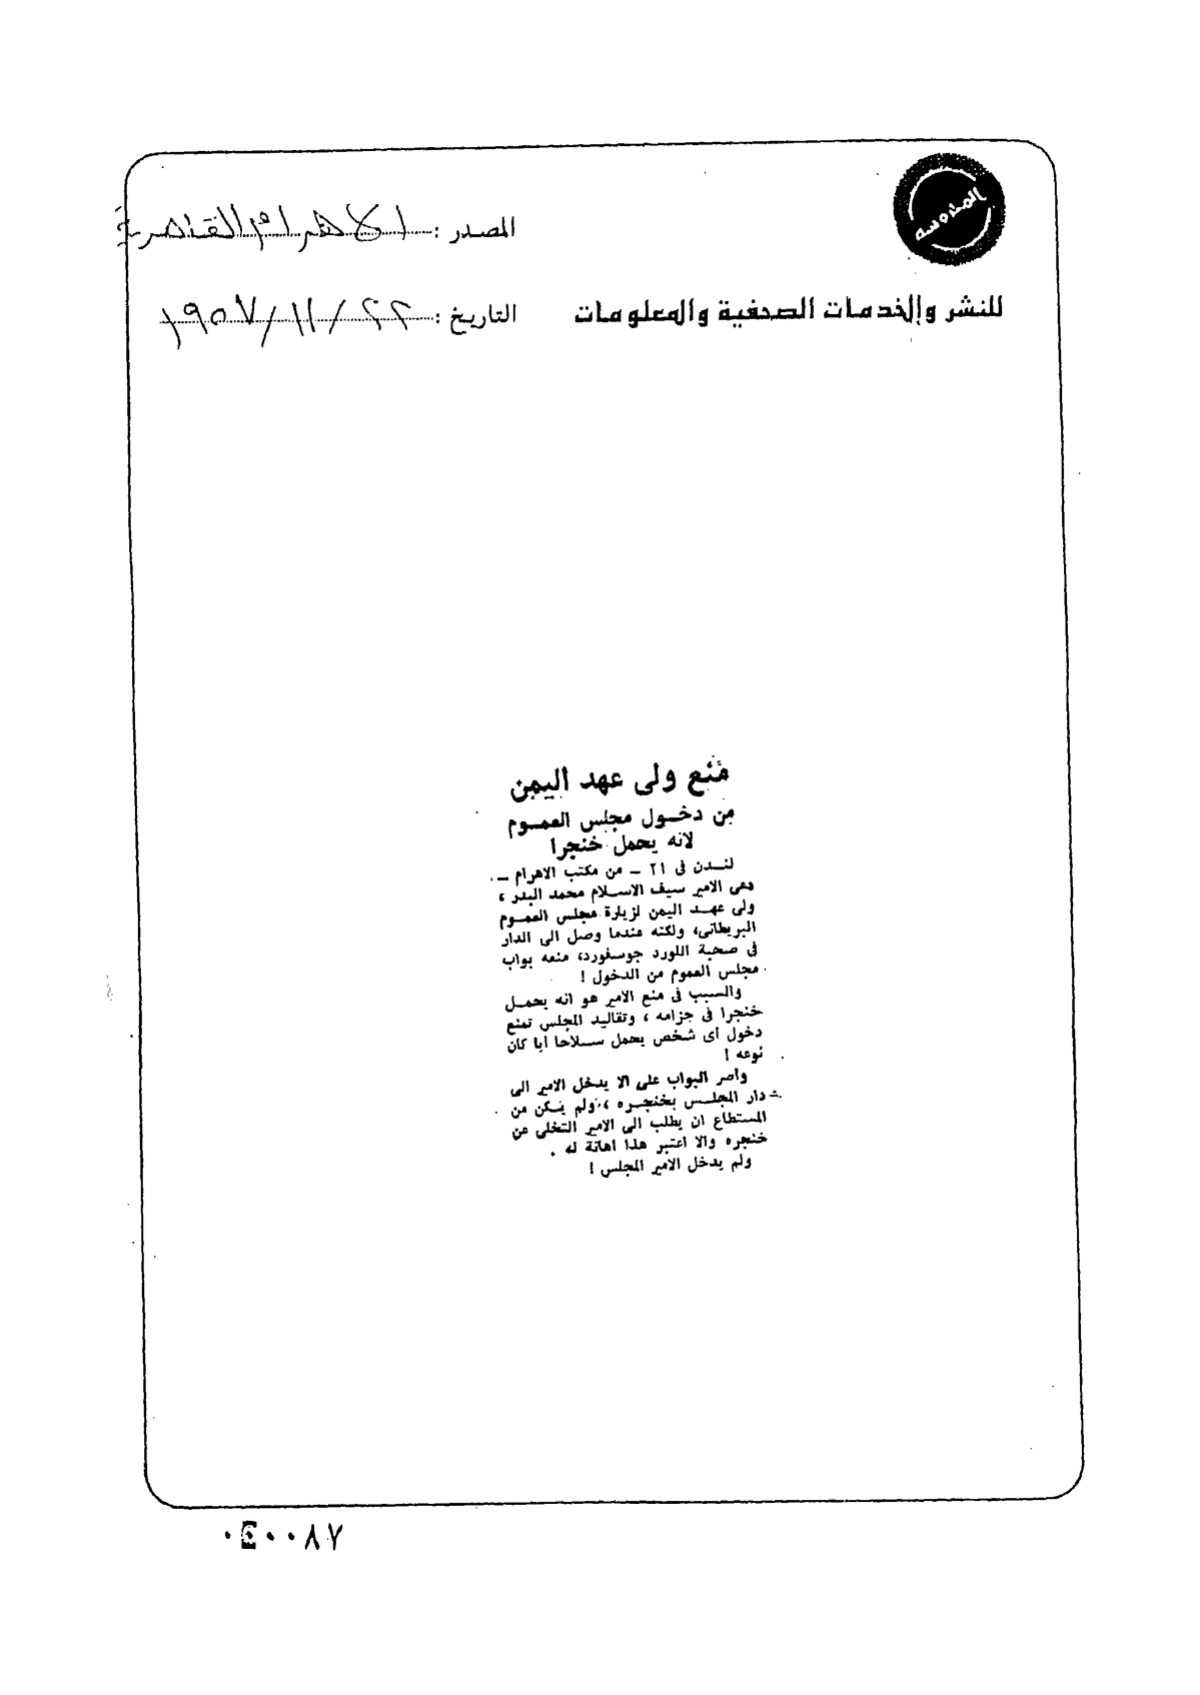 المدوسه
المصدر : الاهرام القاهرية
للنشر والخدمات الصحفية والمعلومات
التاريخ : ٢٢/ ١١/ ١٩٥٧
منع ولى عهد اليمن
من دخـول مجلس العمـوم
لانه يحمل خنجرا
لنـدن فى ٢١ ـ من مكتب الاهرام ـ
دعى الامير سيف الاسـلام محمد البدر ،
ولى عهـد اليمن لزيارة مجلس العمـوم
البريطانى، ولكنه عندما وصل الى الدار
فى صحبة اللورد جوسفورد، منعه بواب
مجلس العموم من الدخول !
والسبب فى منع الامير هو انه يحمـل
خنجرا فى حزامه ، وتقاليد المجلس تمنع
دخول اى شخص يحمل سـلاحا ايا كان
نوعه !
واصر البواب على الا يدخل الامير الى
دار المجلـس بخنجـره ، ولم يـكن من
المستطاع ان يطلب الى الامير التخلى عن
خنجره والا اعتبر هذا اهانة له .
ولم يدخل الامير المجلس !
٠٤٠٠٨٧